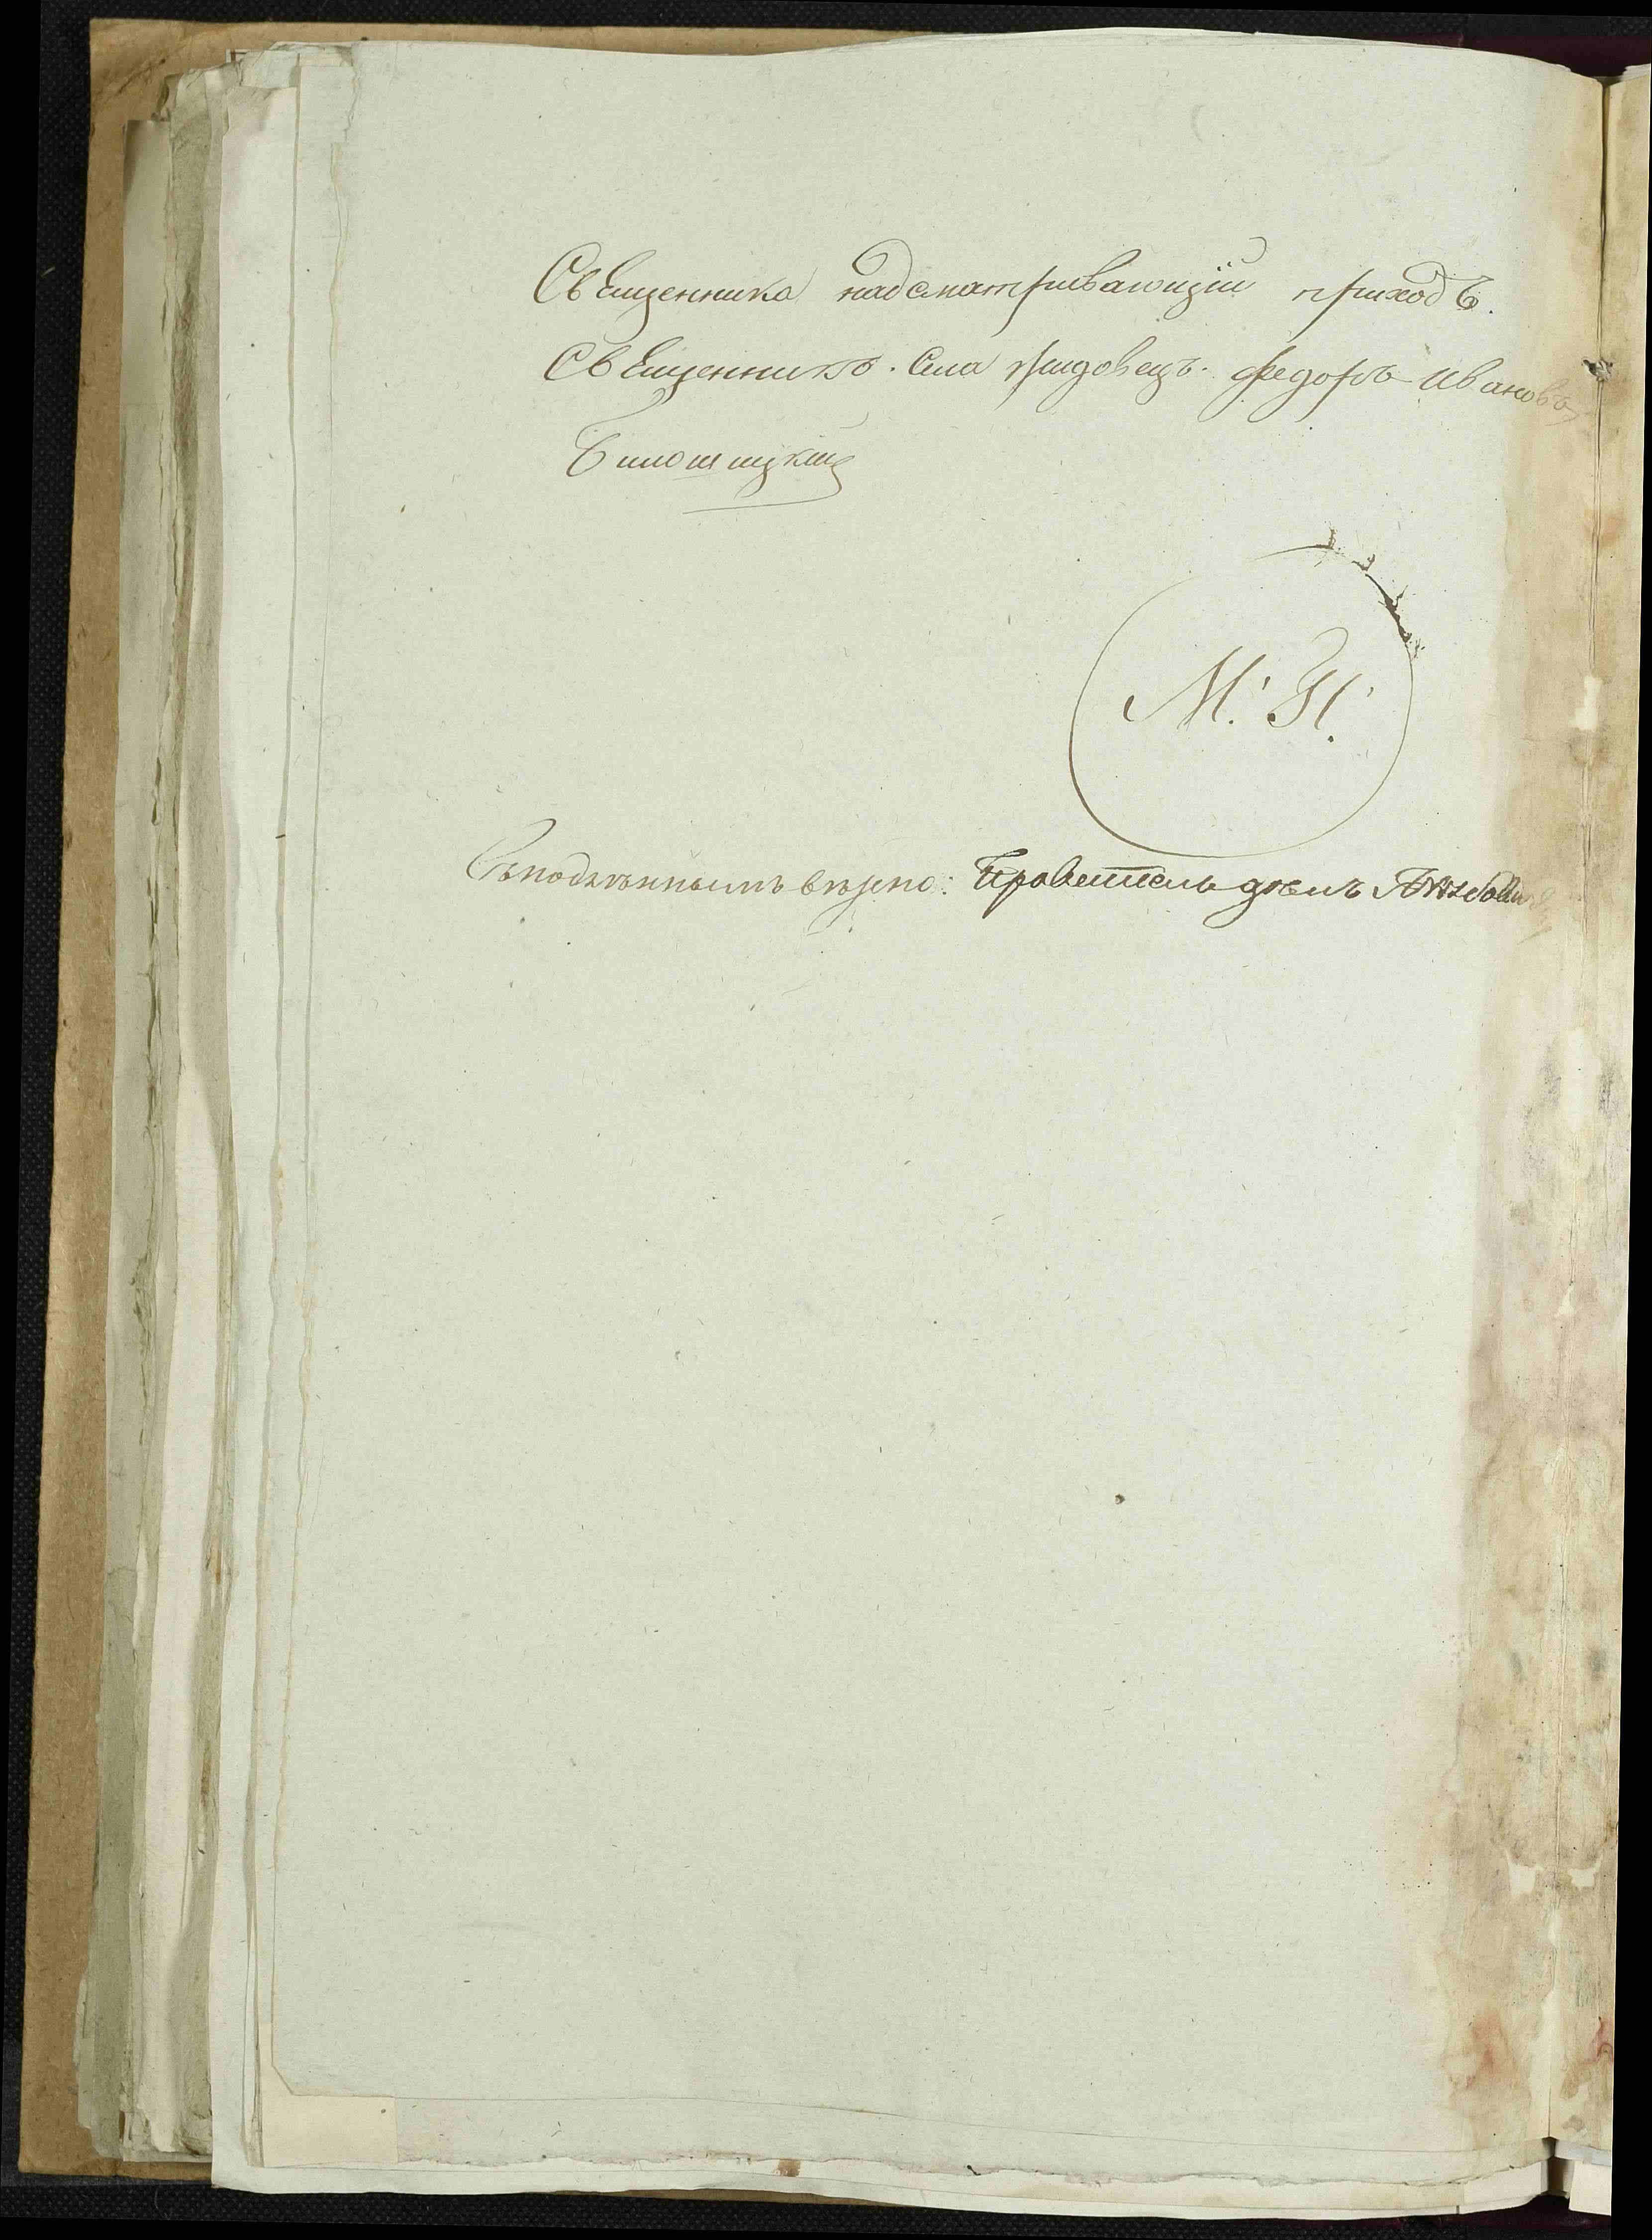 Священника надсматривающій приходъ.
Священникъ. Села Федоръ Ивановъ
Билошицкій
М. П.
Съ подлиннымъ вѣрно: Правитель дѣлъ